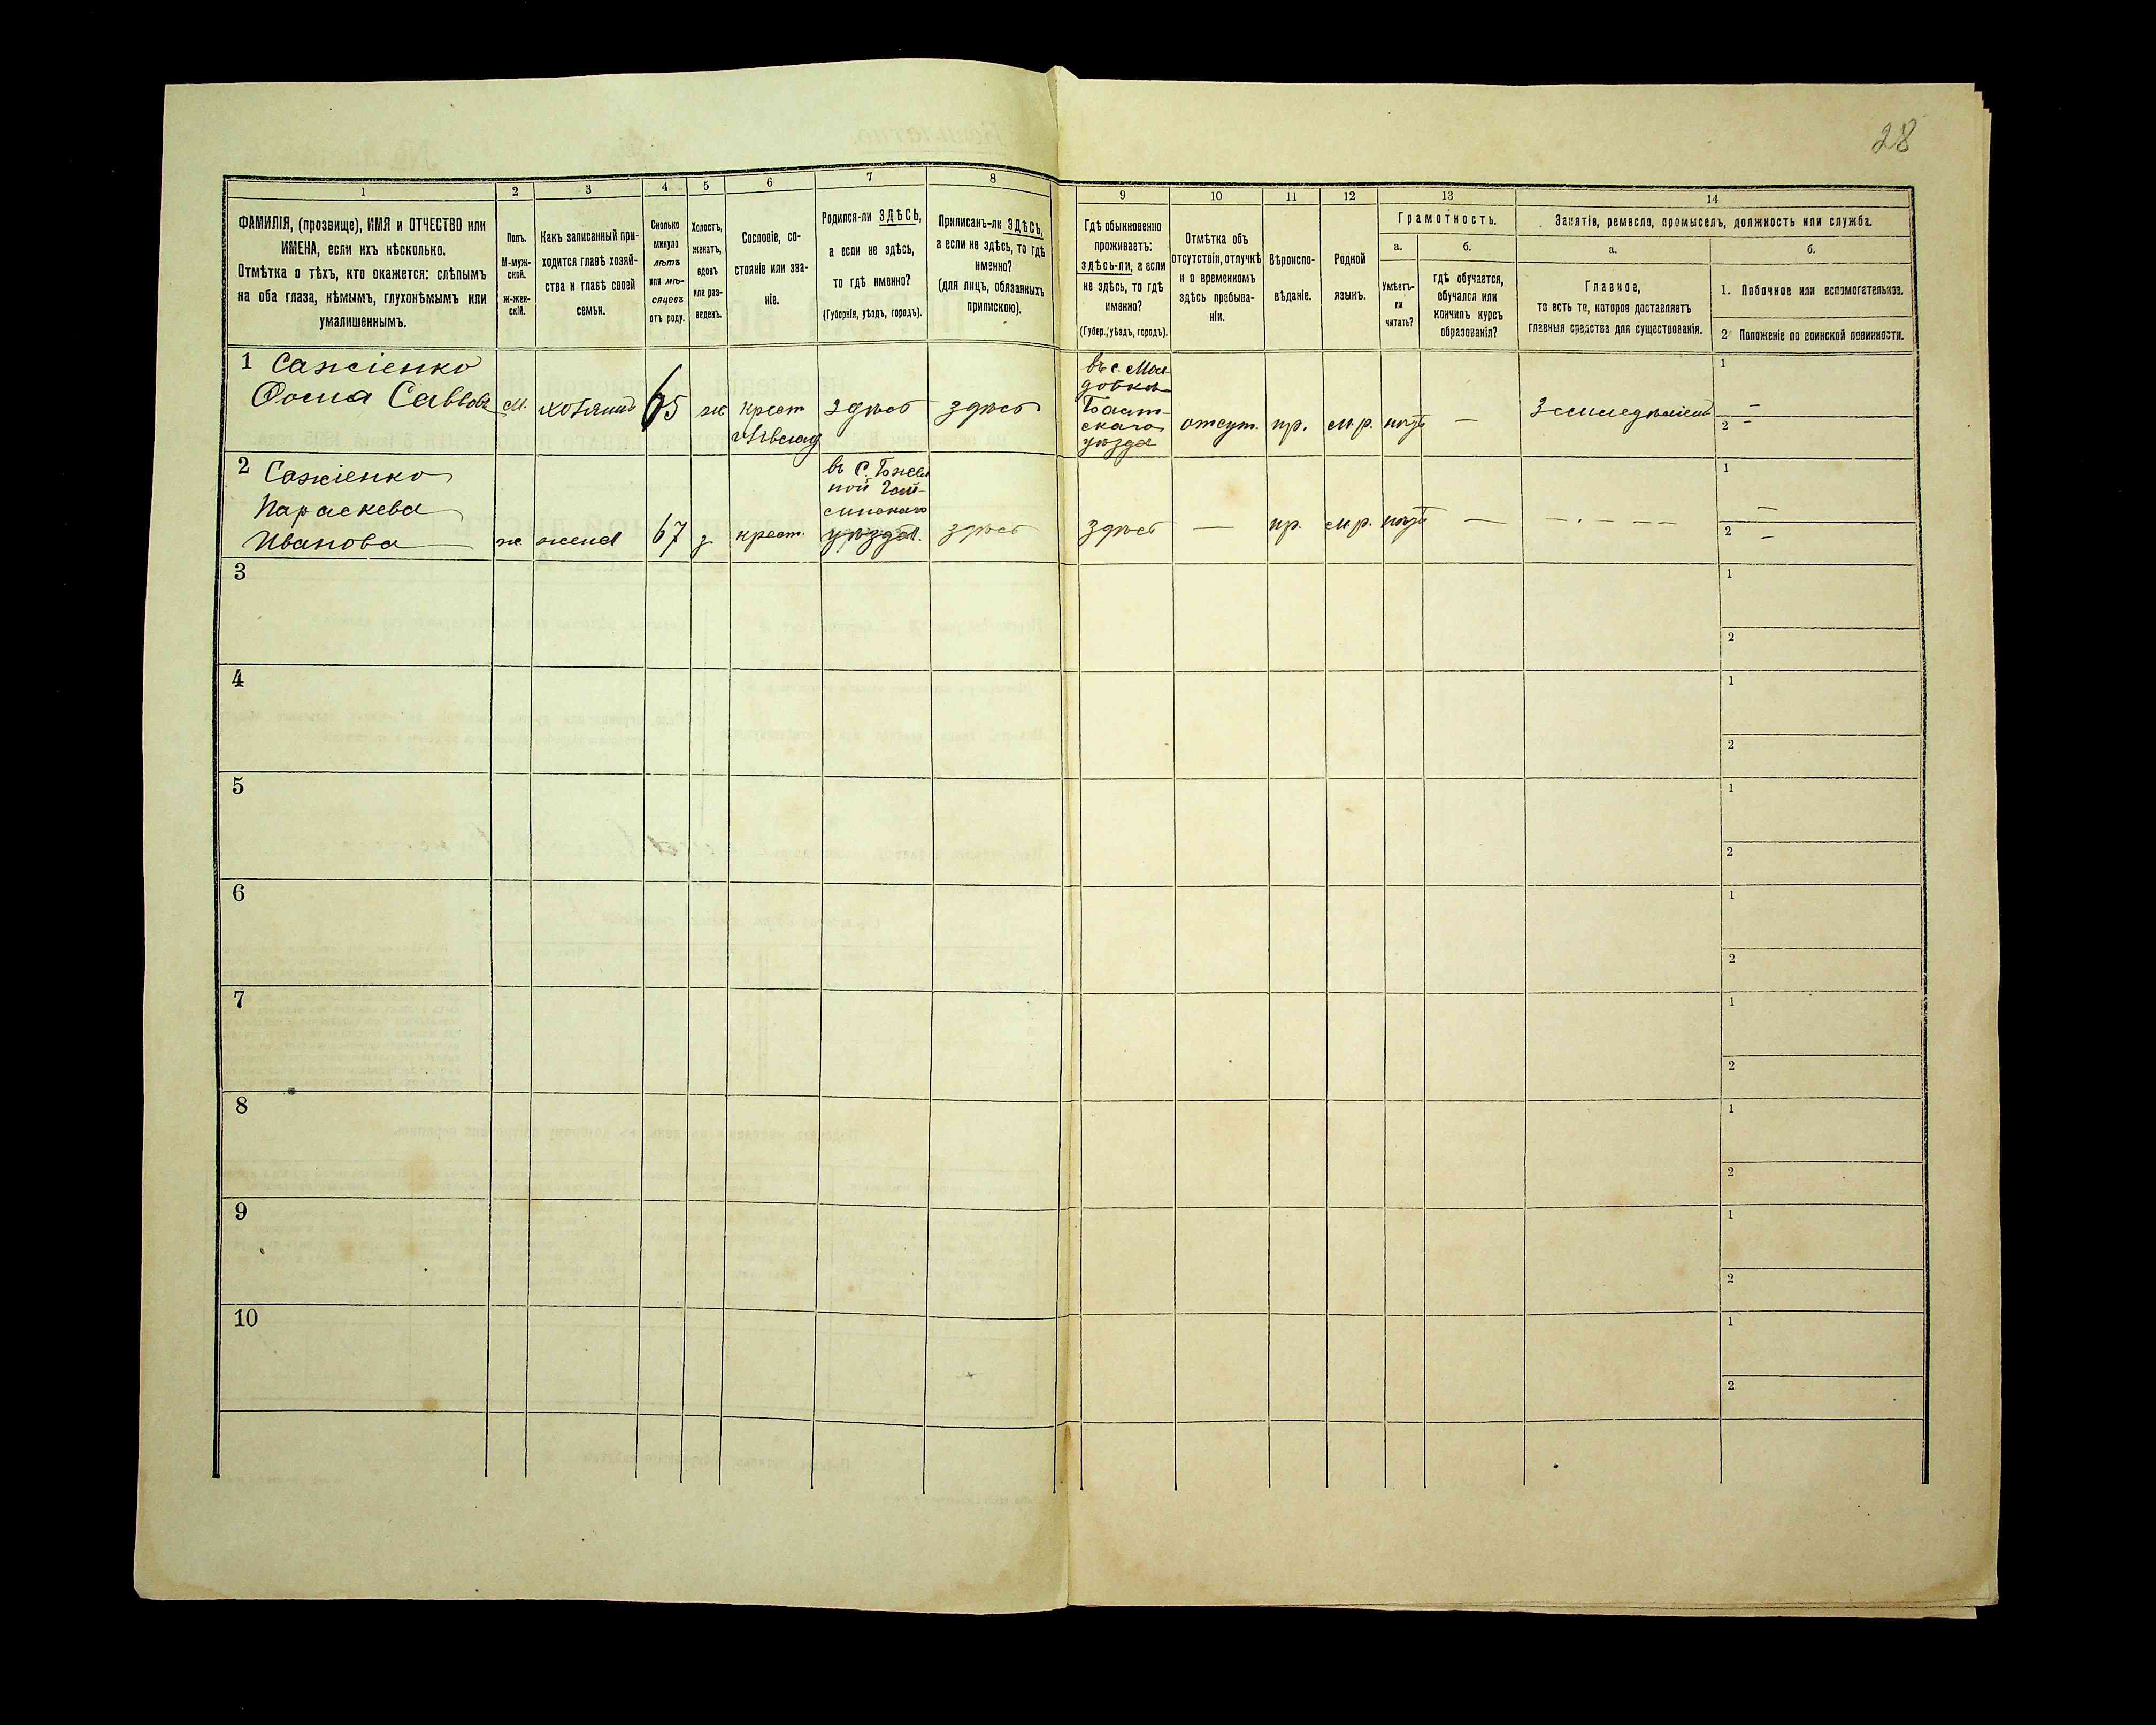 28
1 2 3 4 5 6 7 8 9 10 11 12 13 14
ФАМИЛІЯ, (прозвище), ИМЯ и ОТЧЕСТВО или
ИМЕНА, если ихъ нѣсколько.
Отмѣтка о тѣхъ, кто окажется: слѣпымъ
на оба глаза, нѣмымъ, глухонѣмымъ или
умалишеннымъ.
Полъ.
М-муж-
ской.
ж-жен-
скій.
Какъ записанный при-
ходится главѣ хозяй-
ства и главѣ своей
семьи.
Сколько
минуло
лѣтъ
или мѣ-
сяцевъ
отъ роду.
Холостъ,
женатъ,
вдовъ
или раз-
веденъ.
Сословіе, со-
стояніе или зва-
ніе.
Родился-ли ЗДѢСЬ,
а если не здѣсь,
то гдѣ именно?
(Губернія, уѣздъ, городъ).
Приписанъ-ли ЗДѢСЬ,
а если не здѣсь, то гдѣ
именно?
(для лицъ, обязанныхъ
припискою).
Гдѣ обыкновенно
проживаетъ:
здѣсь-ли, а если
не здѣсь, то гдѣ
именно?
(Губер., уѣздъ, городъ).
Отмѣтка объ
отсутствіи, отлучкѣ
и о временномъ
здѣсь пребыва-
ніи.
Вѣроиспо-
вѣданіе.
Родной
языкъ.
Грамотность.
а.
Умѣетъ-
ли
читать?
б.
гдѣ обучается,
обучался или
кончилъ курсъ
образованія?
Занятія, ремесло, промыселъ, должность или служба.
а.
Главное,
то есть то, которое доставляетъ
главныя средства для существованія.
б.
1. Побочное или вспомогательное.
2. Положеніе по воинской повинности.
1 Сажіенко
Фома Саввовъ м. хозяинъ 65 ж крест здѣсь здѣсь
въ с.
уѣзда
отсут. пр. м.р. нѣтъ — Земледѣліемъ
1 —
2 —
2 Сажіенко
Параскева
Иванова ж. жена 67 з крест.
въ с.
уѣзда. здѣсь здѣсь — пр. м.р. нѣтъ — — . — — —
1 —
2 —
3
1
2
4
1
2
5
1
2
6
1
2
7
1
2
8
1
2
9
1
2
10
1
2